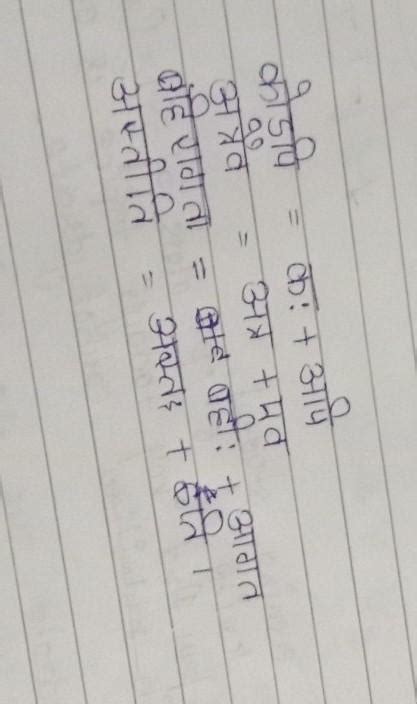 कोऽपि = कः + अपि
अत्रैव = अत्र + एव
बहिरागता = बहिः + आगत
अस्तीति = + इति ।